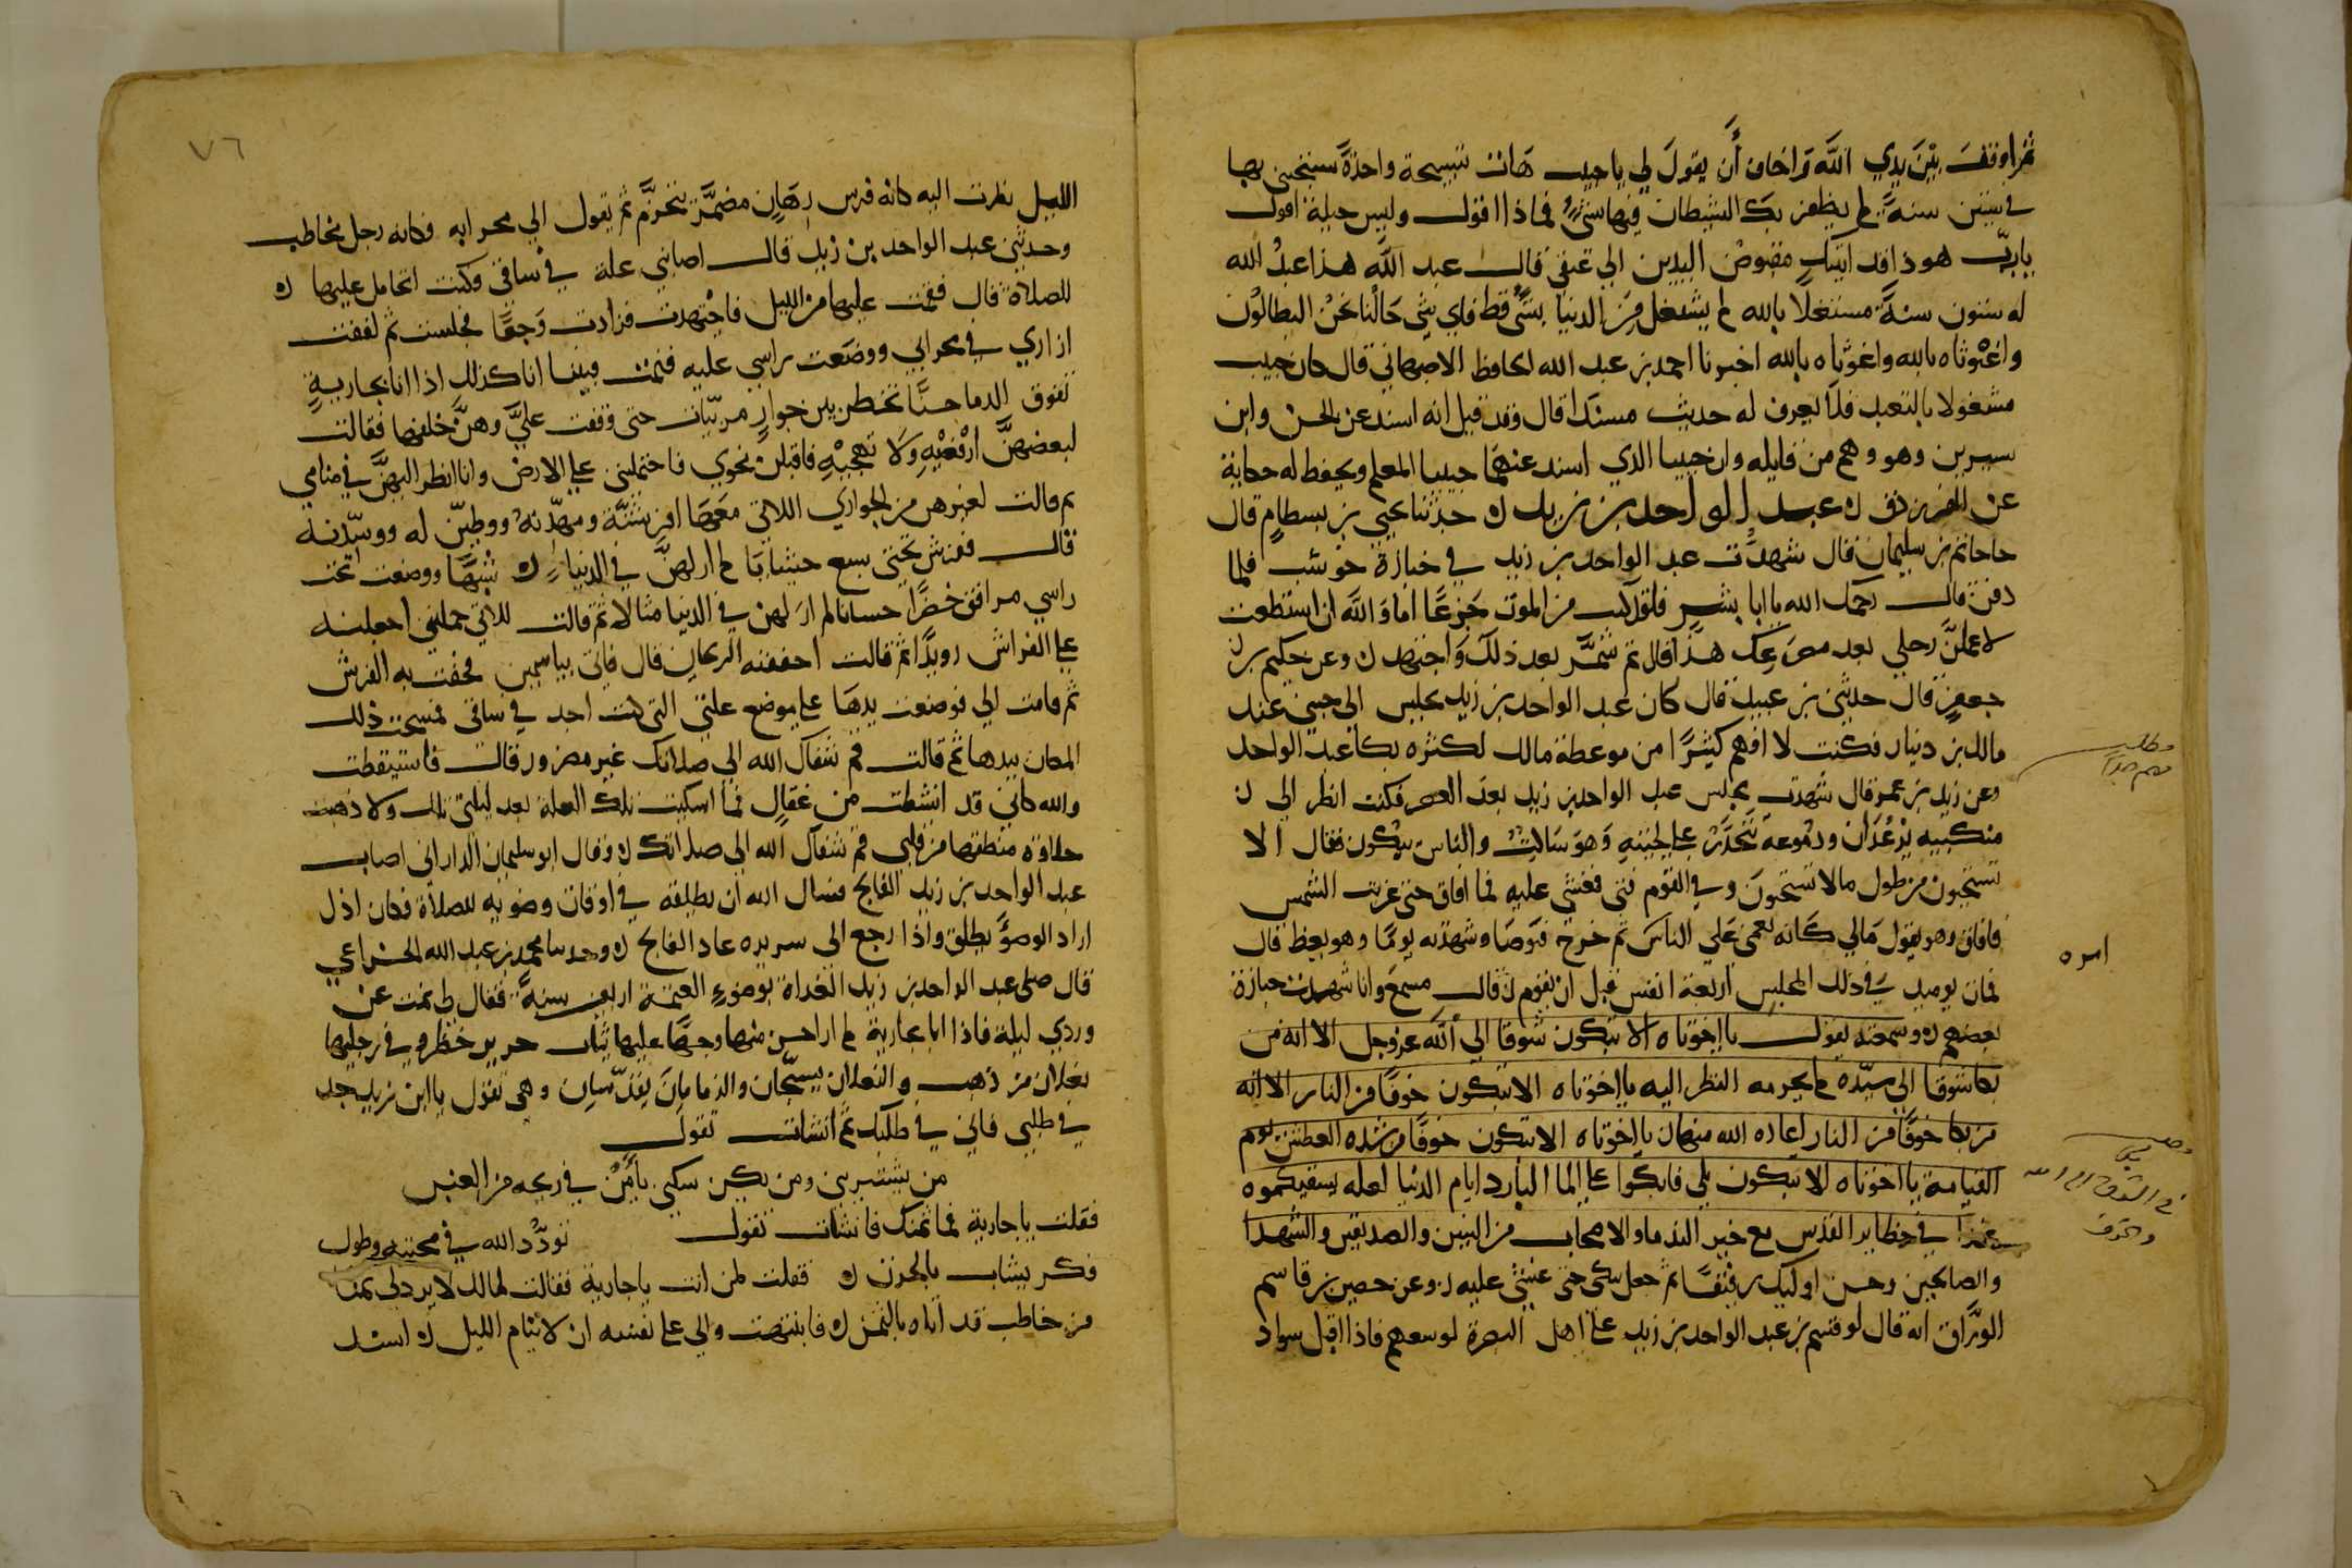 ثم اوقف بين يدي الله واخاف أن يقول لي يا حبيب هات تسبيحة واحدة سبحتني بها
في ستين سنة لم يظفر بك الشيطان فيها بشيء فماذا اقول وليس حيلة اقول
يا رب هوذا قد اتيتك مقبوض اليدين الي عنقي قال عبد الله هذا عبد الله
له ستون سنة مشتغلا بالله لم يشتغل من الدنيا بشئ قط فاي شي حالنا نحن البطالون
واغوثاه بالله واغوثاه بالله اخبرنا احمد بن عبد الله الحافظ الاصبهاني قال كان حبيب
مشغولا بالتعبد فلا يعرف له حديث مسندا قال وقد قيل انه اسند عن الحسن وابن
سيرين وهو وهم من قايله وان حبيبا الذي اسند عنهما حبيبا المعلم ويحفظ له حكاية
عن الفرزدق ن عبد الواحد بن زيد ن حدثنا يحيى بن بسطام قال
حاتم بن سليمان قال شهدت عبد الواحد بن زيد في جنازة حوشب فلما
دفن قال رحمك الله يا ابا بشر فلقد كنت من الموت جزعا اما والله ان استطعت
لاعملن رحلي بعد مصرعك هذا قال ثم شمر بعد ذلك واجتهد ن وعن حكيم بن
جعفر قال حدثني بن عبيد قال كان عبد الواحد بن زيد يجلس الى جنبي عند
مالك بن دينار فكنت لا افهم كثيرا من موعظة مالك لكثره بكا عبد الواحد
وعن زيد بن عمر قال شهدت مجلس عبد الواحد بن زيد بعد العصر فكنت انظر الي
منكبيه يرعدان ودموعه تتحدر علي لحيته وهو ساكت والناس يبكون فقال الا
تستحيون من طول ما لا تستحيون وفي القوم فتى فغشي عليه فما افاق حتى غربت الشمس
فافاق وهو يقول مالي كانه يعمى علي الناس ثم خرج فتوضا وشهدته يوما وهو يعظ قال
فمات يوميذ في ذلك المجلس اربعة انفس قبل ان يقوم قال مسمع وانا شهدت جنازة
بعضهم ن وسمعته يقول يا اخوتاه الا تبكون شوقا الي الله عز وجل الا انه من
بكا شوقا الي سيده لم يحرمه النظر اليه يا اخوتاه الا تبكون خوفا من النار الا انه
من بكا خوفا من النار اعاذه الله منها يا اخوتاه الا تبكون خوفا من شده العطش يوم
القيامة يا اخوتاه الا تبكون بلي فابكوا علي الما البارد ايام الدنيا لعله يسقيكموه
غدا في حظاير القدس مع خير الندما والاصحاب من النبيين والصديقين والشهدا
والصالحين وحسن اوليك رفيقا ثم جعل يبكي حتى غشي عليه ن وعن حصين بن قاسم
الوراق انه قال لو قسم بث عبد الواحد بن زيد علي اهل البصرة لوسعهم فاذا اقبل سواد
مطلب
مهم جدا
امره
في الشوق الي الله
والخوف
٧٦
الليل نظرت اليه كانه فرس رهان مضمر يتحزم ثم يقول الي محرابه فكانه رجل مخاطب
وحدثني عبد الواحد بن زيد قال اصابتني علة في ساقي وكنت اتحامل عليها ن
للصلاة قال فقمت عليها من الليل فاجتهدت فزادت وجعا فجلست ثم لففت
ازاري في محرابي ووضعت راسي عليه فنمت فبينا انا كذلك اذا انا بجارية
تفوق الدما حسنا تخطر بين جوار مزينات حتى وقفت علي وهن خلفها فقالت
لبعضهن ارفعنه ولا تهجنه فاقبلن نحوي فاحتملنني علي الارض وانا انظر اليهن في منامي
ثم قالت لغيرهن من الجواري اللاتي معها افرشنه ومهدنه ووطين له ووسدنه
قال ففرشن تحتي سبع حشايا لم ار لهن في الدنيا شبها ووضعت تحت
راسي مرافق خضرا حسانا لم ار لهن في الدنيا مثالا ثم قالت للاتي حملنني اجعلنه
علي الفراش رويدا ثم قالت احففنه الريحان قال فاتي بياسمين فحفت به الفرش
ثم قامت الي فوضعت يدها علي موضع علتي التي كنت اجد في ساقي فمسحت ذلك
المكان بيدها ثم قالت قم شفاك الله الي صلاتك غير مضرور قال فاستيقظت
والله كاني قد انشطت من عقال فما اشتكيت تلك العلة بعد ليلتي تلك ولا ذهبت
حلاوة منطقها من قلبي قم شفاك الله الي صلاتك ن وقال ابو سليمان الداراني اصاب
عبد الواحد بن زيد الفالج فسال الله ان يطلقه في اوقات وضويه للصلاة فكان اذا
اراد الوضؤ يطلق واذا رجع الى سريره عاد الفالج ن وحدثنا محمد بن عبد الله الخزاعي
قال صلى عبد الواحد بن زيد الغداة بوضوء العتمة اربعين سنة فقال لي نمت عن
وردي ليلة فاذا انا بجارية لم ار احسن منها وجها عليها ثياب حرير خضر وفي رجليها
نعلان من ذهب والنعلان يسبحان والزمامان يقدسان وهي تقول يا ابن زيد جد
في طلبي فاني في طلبك ثم انشات تقول
من يشتريني ومن يكن سكني يأمن في ربحه من الغبن
فقلت يا جارية فما ثمنك فانشات تقول تودد الله في محبته وطول
فكر يشاب بالحزن ن فقلت لمن انت يا جارية فقالت لمالك لا يرد لي ثمنا
من خاطب قد اتاه بالثمن ن فانتبهت والي علي نفسه ان لا ينام الليل ن اسند